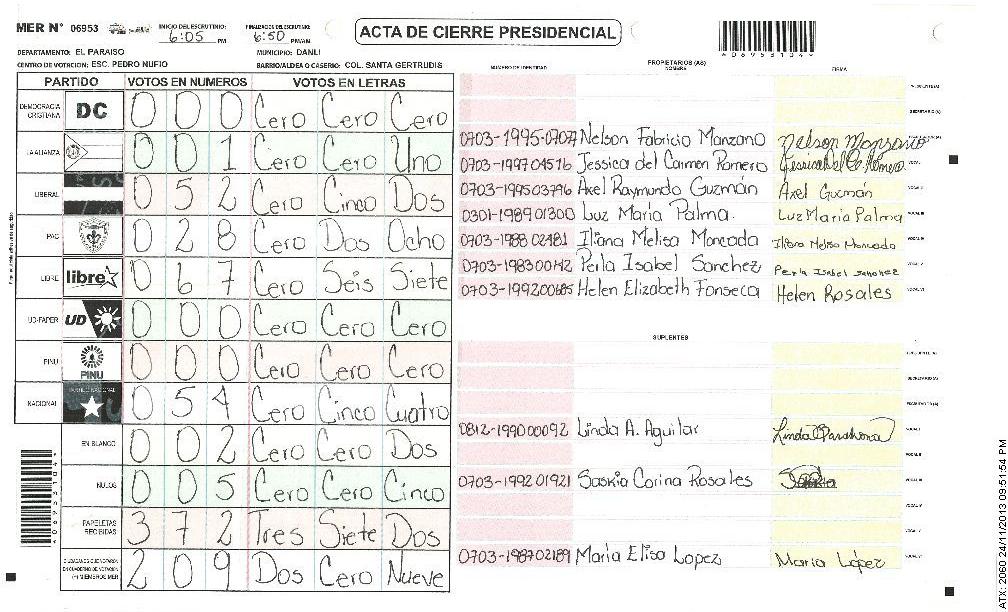 MER N° 06953 INICIO DEL ESCRUTINIO: 6:05 PM FINALIZACION DEL ESCRUTINIO: 6:50 PM/AM
ACTA DE CIERRE PRESIDENCIAL
DEPARTAMENTO: EL PARAISO MUNICIPIO: DANLI
CENTRO DE VOTACION: ESC. PEDRO NUFIO BARRIO/ALDEA O CASERIO: COL. SANTA GERTRUDIS
PARTIDO VOTOS EN NUMEROS VOTOS EN LETRAS
DEMOCRACIA CRISTIANA DC 0 0 0 Cero Cero Cero
LA ALIANZA 0 0 1 Cero Cero Uno
LIBERAL 0 5 2 Cero Cinco Dos
PAC 0 2 8 Cero Dos Ocho
LIBRE libre 0 6 7 Cero Seis Siete
UD-FAPER UD 0 0 0 Cero Cero Cero
PINU PINU 0 0 0 Cero Cero Cero
NACIONAL 0 5 4 Cero Cinco Cuatro
EN BLANCO 0 0 2 Cero Cero Dos
NULOS 0 0 5 Cero Cero Cinco
PAPELETAS RECIBIDAS 3 7 2 Tres Siete Dos
2 0 9 Dos Cero Nueve
NUMERO DE IDENTIDAD PROPIETARIOS (AS) NOMBRE FIRMA
Nelson Fabricio Manzano
0703-1997 04516 Jessica del Carmen Romero
0703-1995 03796 Axel Raymundo Guzmán Axel Guzmán
0301-1989 01300 Luz Maria Palma Luz Maria Palma
0703-1988 02481 Iliana Melisa Moncada Iliana Melisa Moncada
0703-1983 00142 Perla Isabel Sanchez Perla Isabel Sanchez
0703-1992 00685 Helen Elizabeth Fonseca Helen Rosales
SUPLENTES
0812-1990 00092 Linda A. Aguilar
0703-1992 01921 Saskia Corina Rosales
0703-1987 02189 Maria Elisa Lopez Maria López
ATX: 2060 24/11/2013 09:51:54 PM